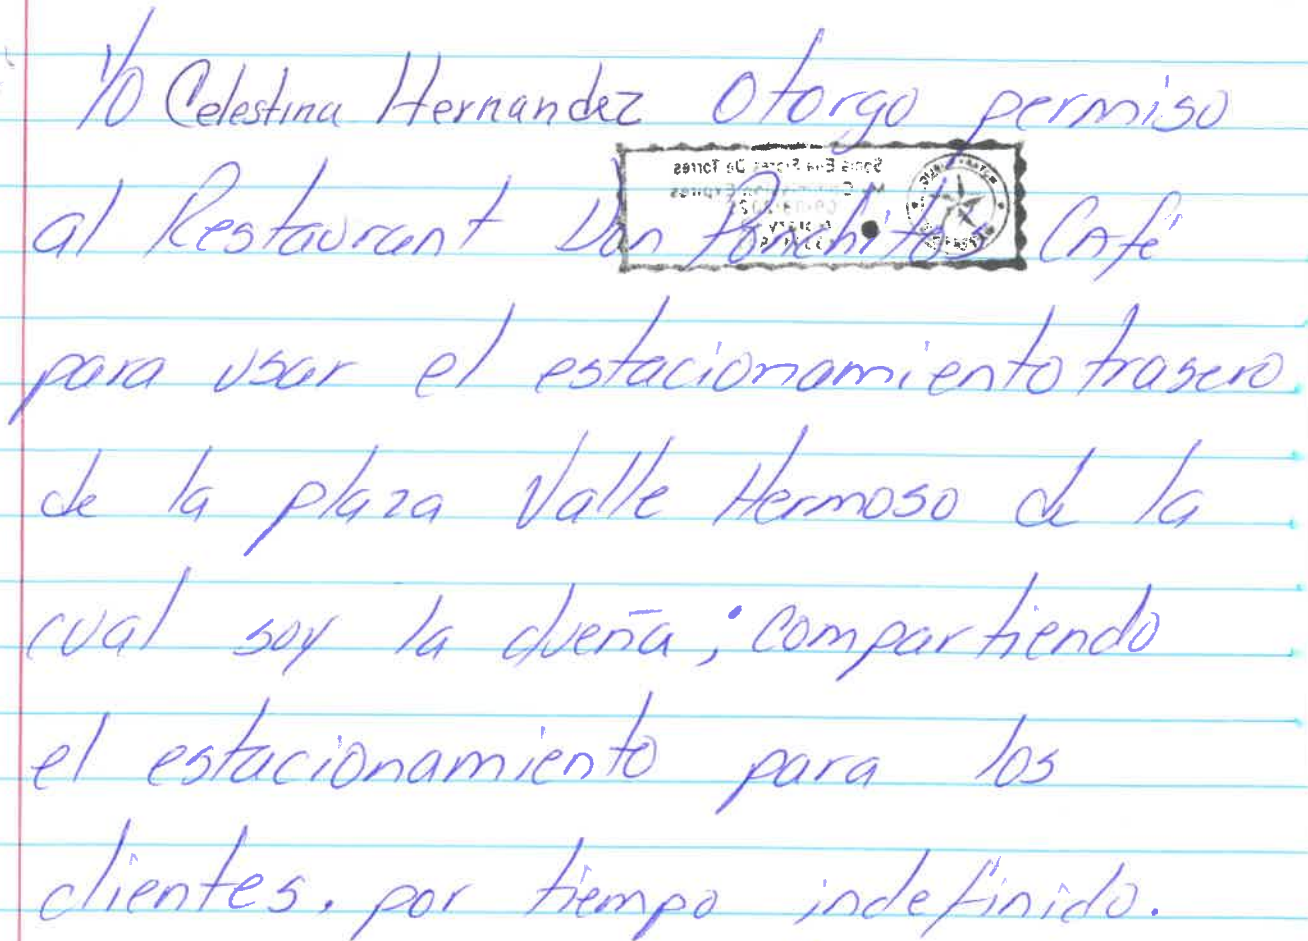 Yo Celestina Hernandez Otorgo permiso
al Restaurant Don Ponchitos Café
para usar el estacionamiento trasero
de la plaza Valle Hermoso de la
cual soy la dueña; compartiendo
el estacionamiento para los
clientes. por tiempo indefinido.